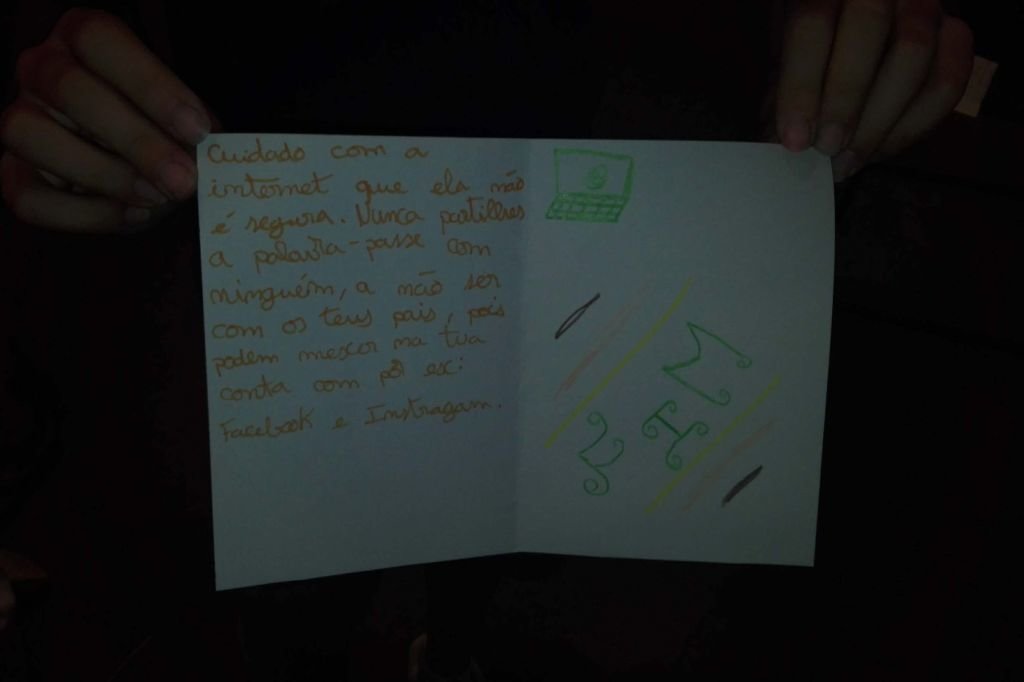 Cuidado com a
internet que ela não
é segura. Nunca partilhes
a palavra-passe com
ninguém, a não ser
com os teus pais, pois
podem mexer na tua
conta com pôr ex:
Facebook e Instragam.